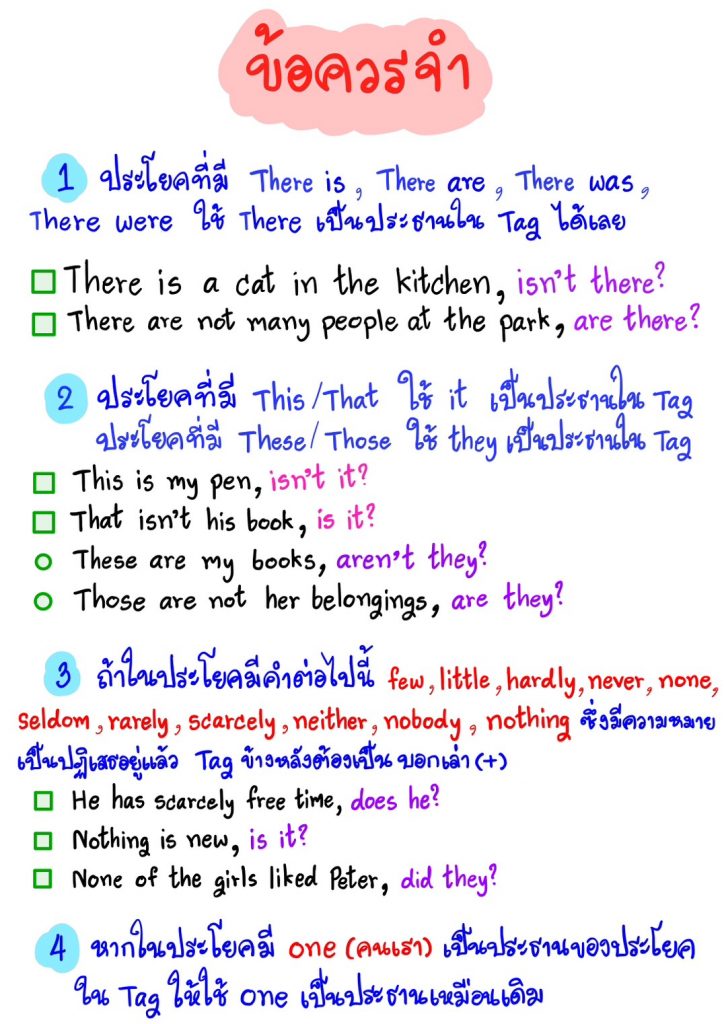 ข้อควรจำ
1 ประโยคที่มี There is , There are , There was ,
There were ใช้ There เป็นประธานใน Tag ได้เลย
There is a cat in the kitchen, isn't there?
There are not many people at the park, are there?
2 ประโยคที่มี This/That ใช้ it เป็นประธานใน Tag
ประโยคที่มี These/Those ใช้ they เป็นประธานใน Tag
This is my pen, isn't it?
That isn't his book, is it?
These are my books, aren't they?
Those are not her belongings, are they?
3 ถ้าในประโยคมีคำต่อไปนี้ few, little, hardly, never, none,
seldom, rarely, scarcely, neither, nobody, nothing ซึ่งมีความหมาย
เป็นปฏิเสธอยู่แล้ว Tag ข้างหลังต้องเป็น บอกเล่า (+)
He has scarcely free time, does he?
Nothing is new, is it?
None of the girls liked Peter, did they?
4 หากในประโยคมี one (คนเรา) เป็นประธานของประโยค
ใน Tag ให้ใช้ one เป็นประธานเหมือนเดิม